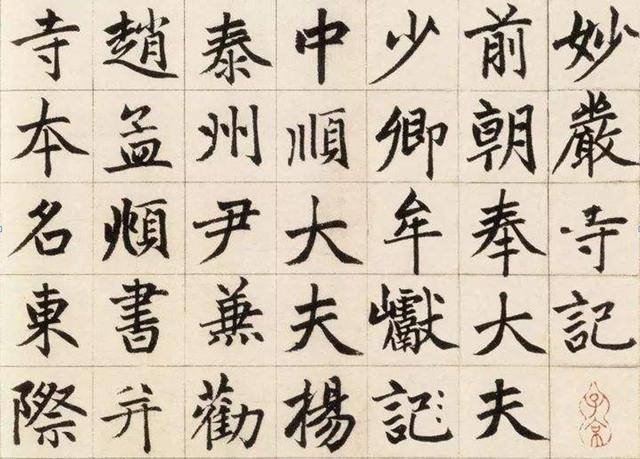 妙嚴寺記
前朝奉大夫
少卿牟巘記
中順大夫揚
泰州尹兼勸
趙孟頫書并
寺本名東際